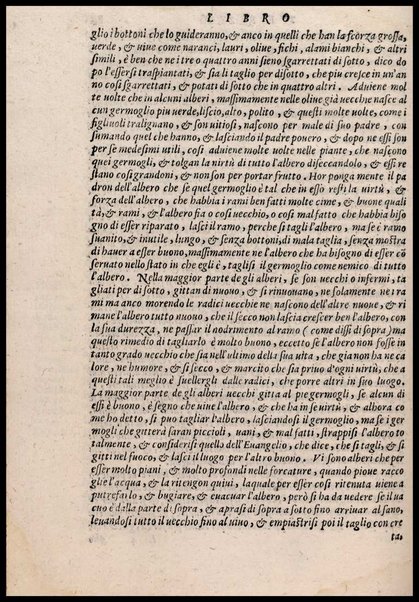 LIBRO
glio i bottoni che lo guideranno, & anco in quelli che han la scorza grossa,
uerde, & uiue come naranci, lauri, oliue, fichi, alami bianchi, & altri
simili, è ben che ne i tre o quattro anni sieno sgarrettati di sotto, dico do
po l'essersi traspiantati, & sia il taglio per disotto, che piu cresce in un'an
no cosi sgarrettati, & potati di sotto che in quattro altri. Aduiene mol
te uolte che in alcuni alberi, massimamente nelle oliue già uecchie nasce al
cun germoglio piu uerde, liscio, alto, polito, & questi molte uolte, come i
figliuoli tralignano, & son uitiosi, nascono per male di suo padre, con
sumando quel che hanno, & lasciando il padre pouero, & dopo ne essi son
per se medesimi utili, cosi aduiene molte uolte nelle piante, che nascono
quei germogli, & tolgan la uirtù di tutto l'albero diseccandolo, & essi re
stano cosi grandoni, & non son per portar frutto. Hor ponga mente il pa
dron dell'albero che se quel germoglio è tal che in esso resti la uirtù, &
forza dell'albero, che habbia i rami ben fatti molte cime, & buone quali
tà, & rami, & l'albero sia o cosi uecchio, o cosi mal fatto che habbia biso
gno di esser riparato, lasci il ramo, perche si tagli l'albero, ma se è ramo
suanito, & inutile, lungo, & senza bottoni, di mala taglia, senza mostra
di hauer a esser buono, massimamente ne l'albero che ha bisogno di esser cō
seruato nello stato in che egli è, taglisi il germoglio come nemico di tutto
l'albero. Nella maggior parte de gli alberi, se son uecchi o infermi, ta
gliati per di sotto, gittan di nuouo, & si rinuouano, ne solamente ne i ra
mi ma anco morendo le radici uecchie ne nascono dell'altre nuoue, & ri
mane l'albero tutto nuouo, che il secco non lascia crescer ben l'albero, con
la sua durezza, ne passar il nodrimento al ramo (come dissi di sopra) ma
questo rimedio di tagliarlo è molto buono, eccetto se l'albero non fosse in
tanto grado uecchio che sia nell'ultimo della sua uita, che gia non ha ne ca
lore, ne humore, & si secco, & marcito che sia priuo d'ogni uirtù, che a
questi tali meglio è suellergli dalle radici, che porre altri in suo luogo.
La maggior parte de gli alberi uecchi gitta al pie germogli, se alcun di
essi è buono, è segno che uiue l'albero, & che ha in se uirtù, & alhora co
me ho detto, si puo tagliar l'albero, lasciandosi il germoglio, ma se i ger
mogli che gitterà saran piccioli, uani, & mal fatti, strappisi l'albero to
talmente, & considerisi quello dell'Euangelio, che dice, che si tagli, & si
gitti nel fuoco, & lasci il luogo per l'altro buono. Vi sono alberi che per
esser molto piani, & molto profondi nelle forcature, quando pioue racco
glie l'acqua, & la ritengon quiui, laquale per esser cosi ritenuta uiene a
putrefarlo, & bugiare, & euacuar l'albero, però si ha da uedere se il ua
cuo è dalla parte di sopra, & aprasi di sopra a sotto fino arriuar al sano,
leuandosi tutto il uecchio fino al uiuo, & empiastrisi poi il taglio con cre
ta,